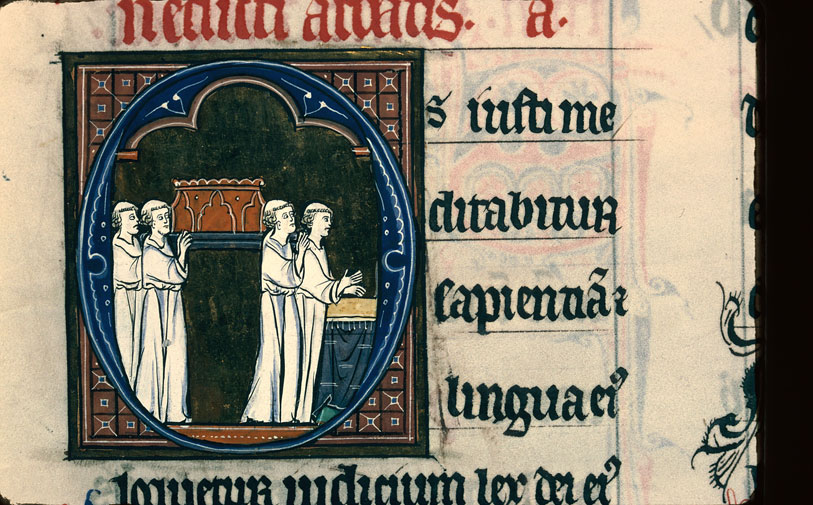 nedicti abbatis. a.
s iusti me
ditabitur
sapientiã ⁊
lingua eiꝰ
loquetur iudicium lex dei eiꝰ